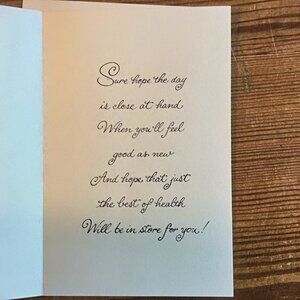 Sure hope the day
is close at hand
When you'll feel
good as new
And hope that just
the best of health
Will be in store for you!